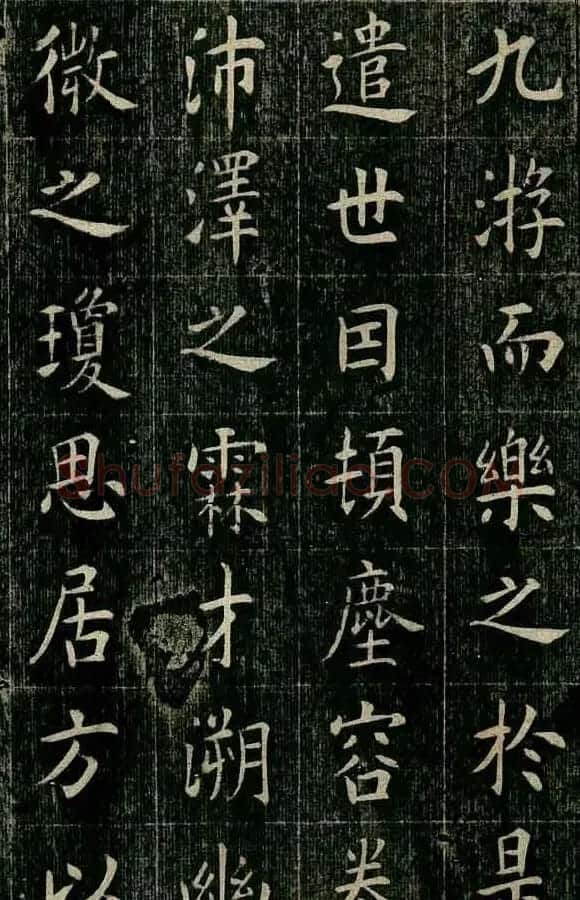 九游而樂之於是
遣世囙頓塵容眷
沛澤之霖才溯幽
微之瓊思居方以
Shufaziliao.COM